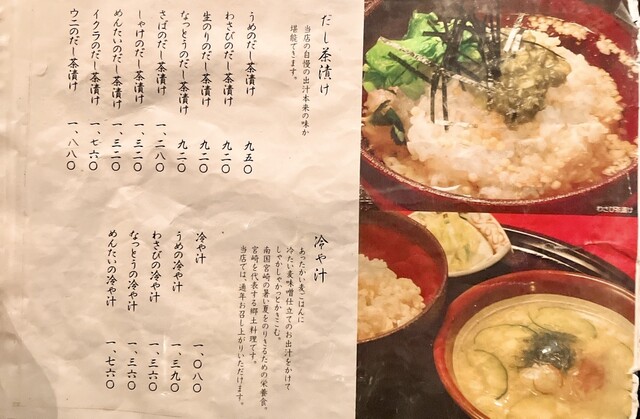 だし茶漬け
当店の自慢の出汁本来の味が
堪能できます。
うめのだし茶漬け 九五〇
わさびのだし茶漬け 九二〇
生のりのだし茶漬け 九二〇
なっとうのだし茶漬け 九二〇
さばのだし茶漬け 一、二八〇
しゃけのだし茶漬け 一、三二〇
めんたいのだし茶漬け 一、三二〇
イクラのだし茶漬け 一、七六〇
ウニのだし茶漬け 一、八八〇
わさび茶漬け
冷や汁
あったかい麦ごはんに
冷たい麦味噌仕立てのお出汁をかけて
しゃかしゃかっとかきこむ。
南国宮崎の暑い夏をのりきるための栄養食。
宮崎を代表する郷土料理です。
当店では、通年お召し上がりいただけます。
冷や汁 一、〇八〇
うめの冷や汁 一、三九〇
わさびの冷や汁 一、三六〇
なっとうの冷や汁 一、三六〇
めんたいの冷や汁 一、七六〇